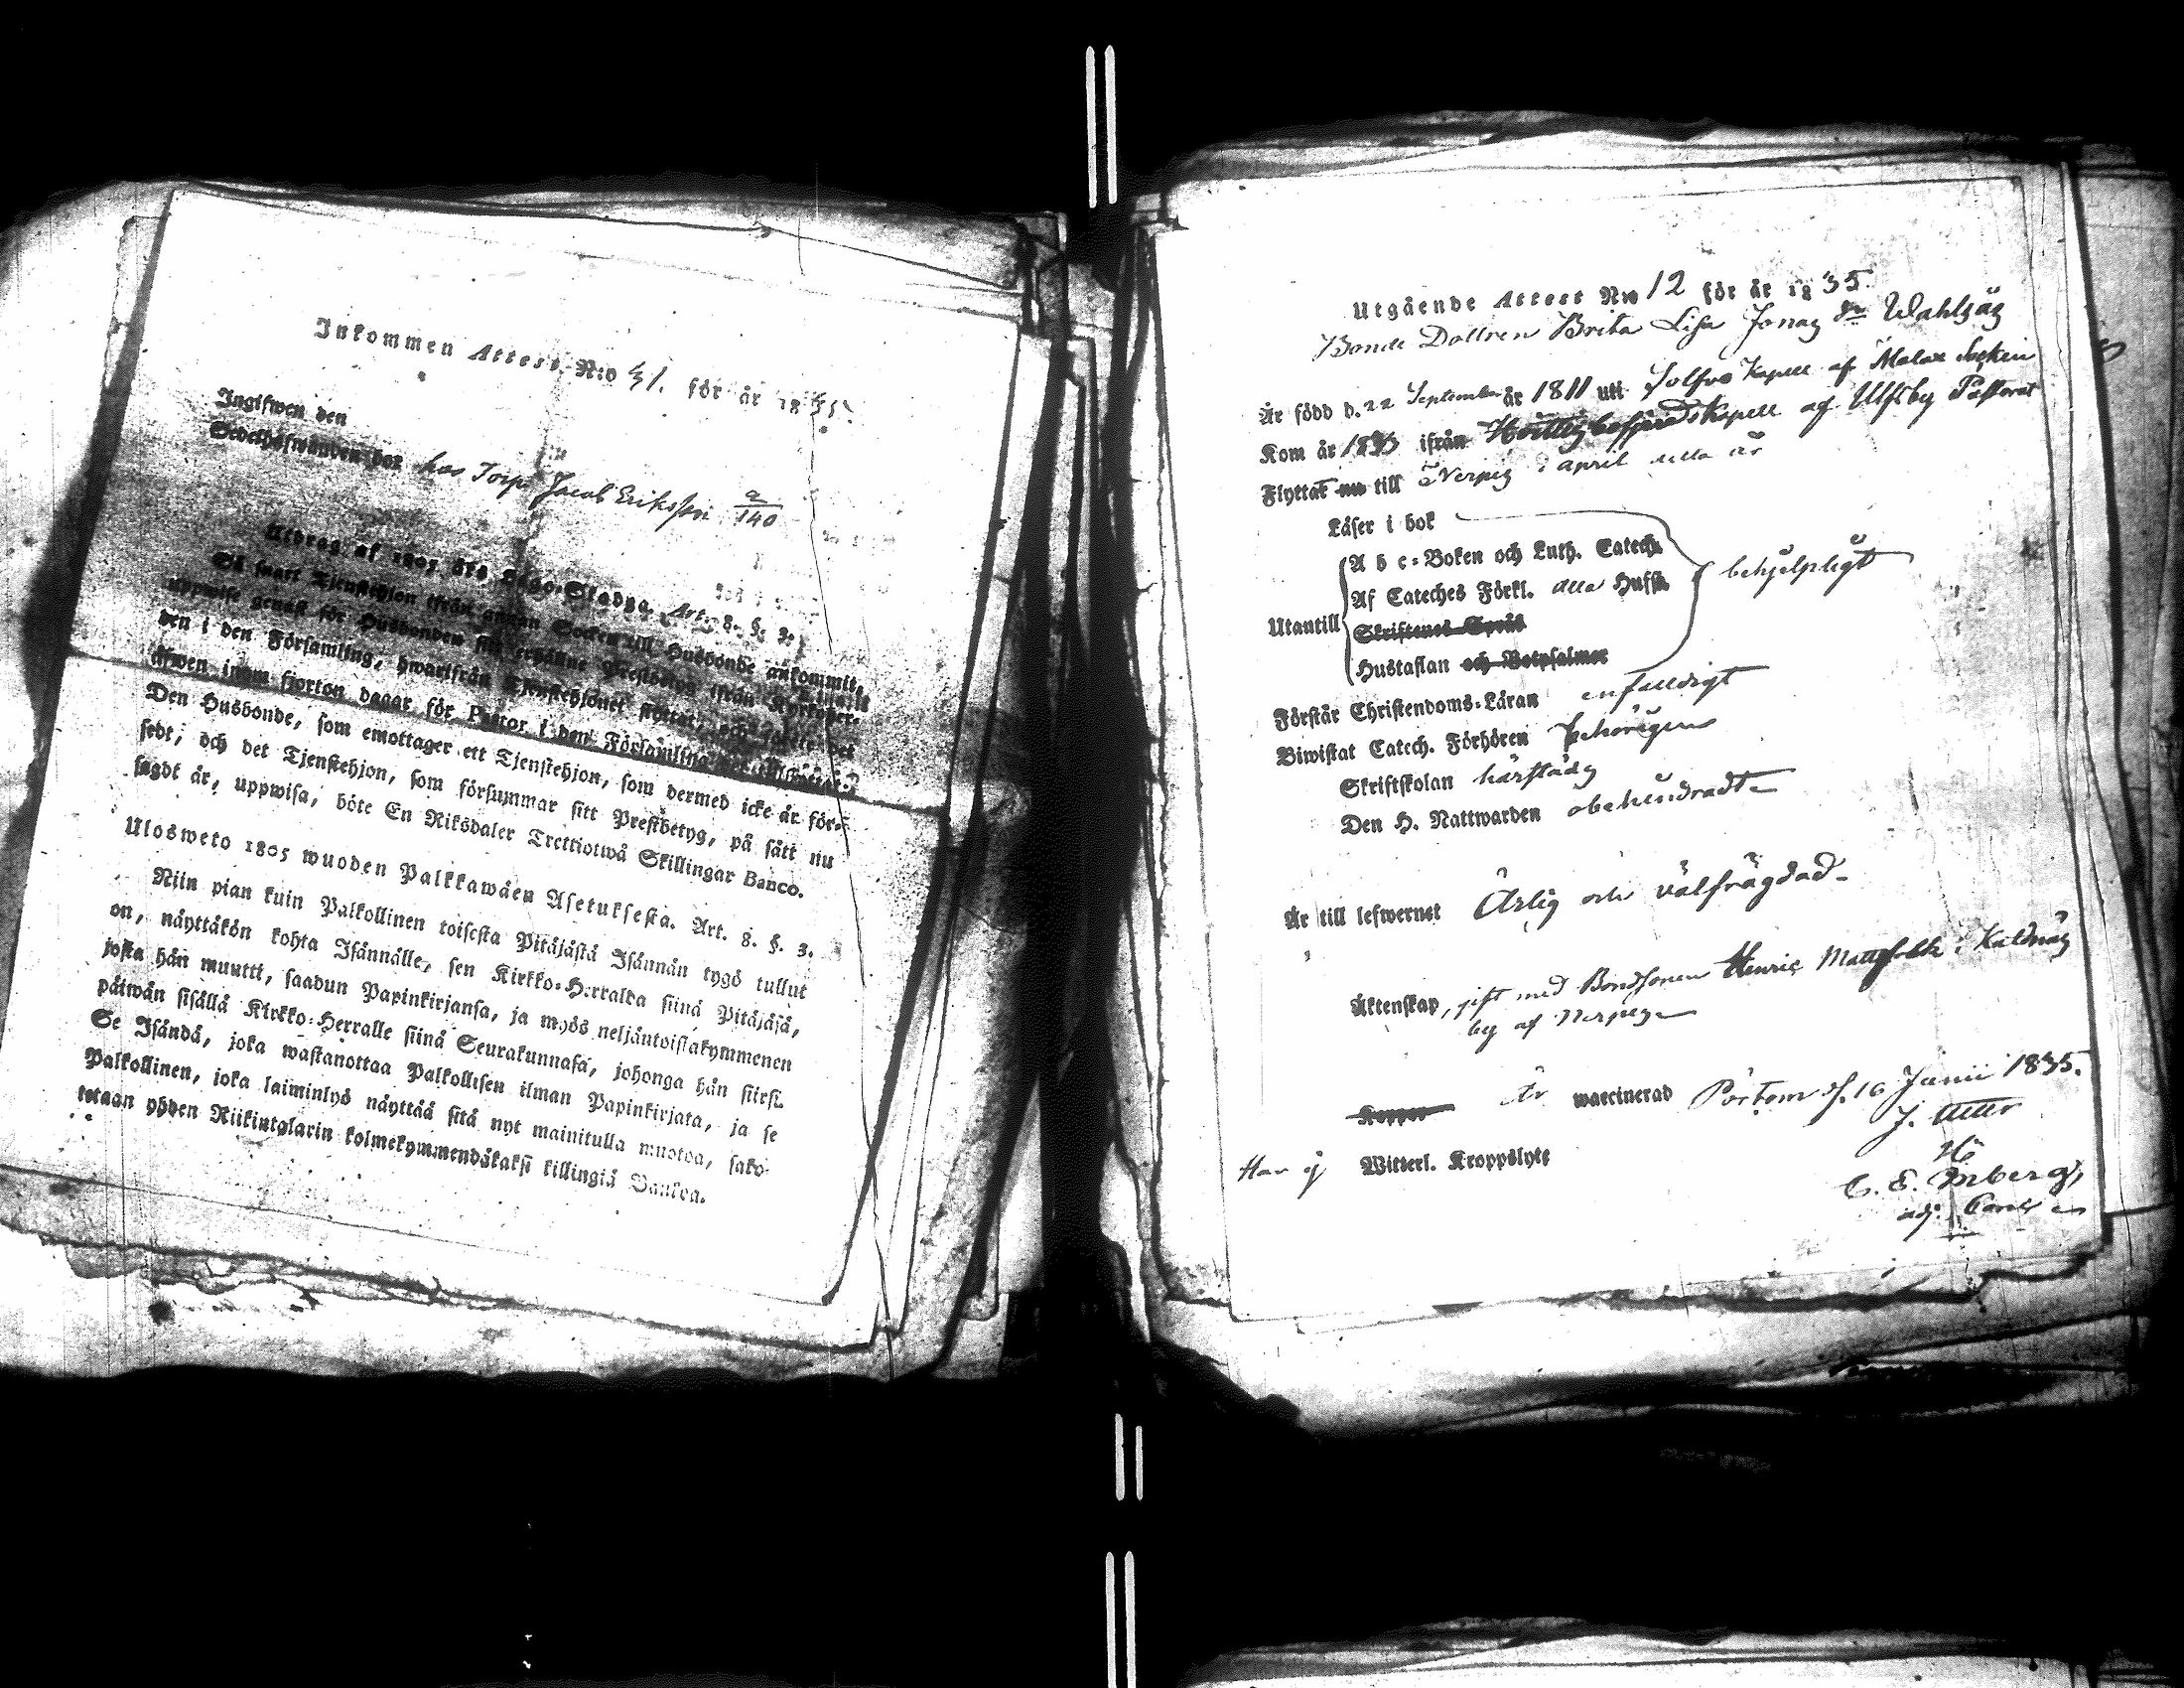 Inkommen Attest N:o 31. för år 1835.
Ingifwen den
hos Torp. Jacob Eriksson a/140
Utdrag af 1805 års Lego-Stadga. Art. 8. §. 3.
Så snart Tjenstehjon ifrån annan Socken till Husbonde ankommit,
uppwise genast för Husbonden sitt erhållne Prestbetyg ifrån Kyrkoher-
den i den Församling, hwarifrån Tjenstehjonet flyttat, och det
äfwen inom fjorton dagar för Pastor i den Församling
Den Husbonde, som emottager ett Tjenstehjon, som dermed icke är för-
sedt; och det Tjenstehjon, som försummar sitt Prestbetyg, på sätt nu
sagdt är, uppwisa, böte En Riksdaler Trettiotwå Skillingar Banco.
Ulosweto 1805 wuoden Palkkawäen Asetuksesta. Art. 8. §. 3.
Niin pian kuin Palkollinen toisesta Pitäjästä Isännän tygö tullut
on, näyttäkön kohta Isännälle, sen Kirkko-Herralda siinä Pitäjäsä,
josta hän muutti, saadun Papinkirjansa, ja myös neljäntoistakymmenen
päiwän sisällä Kirkko-Herralle siinä Seurakunnasa, johonga hän siirsi.
Se Isändä, joka wastanottaa Palkollisen ilman Papinkirjata, ja se
Palkollinen, joka laiminlyö näyttää sitä nyt mainitulla muotoa, sako-
tetaan yhden Riikintalarin kolmekymmendäkaksi killingiä Bankoa.
Utgående Attest N:o 12 för år 1835.
Bonde Dottren Brita Lisa Jonas dr Wahlsäg
Är född d. 22 September år 1811 uti Solfvo Kapell af Malax Socken
Kom år 1833 ifrån Kapell af Ulfsby Pastorat
Flyttat nu till Nerpes i april detta år
Läser i bok
A b c-Boken och Luth. Catech.
Af Cateches Förkl. alla Hufst.
Utantill
behjelpligt
Skriftenes Språk
Hustaflan och Botpsalmer
Förstår Christendoms-Läran enfaldigt
Biwistat Catech. Förhören behörigen
Skriftskolan härstädes
Den H. Nattwarden obehindradt
Är till lefwernet Ärlig och välfrägdad
Äktenskap, gift med Bondsonen Henric Mattsfolk i Kaldnäs
by af Nerpes
Koppor Är waccinerad Pörtom d. 16 Junii 1835.
J. Utter
Har ej Witterl. Kroppslyte